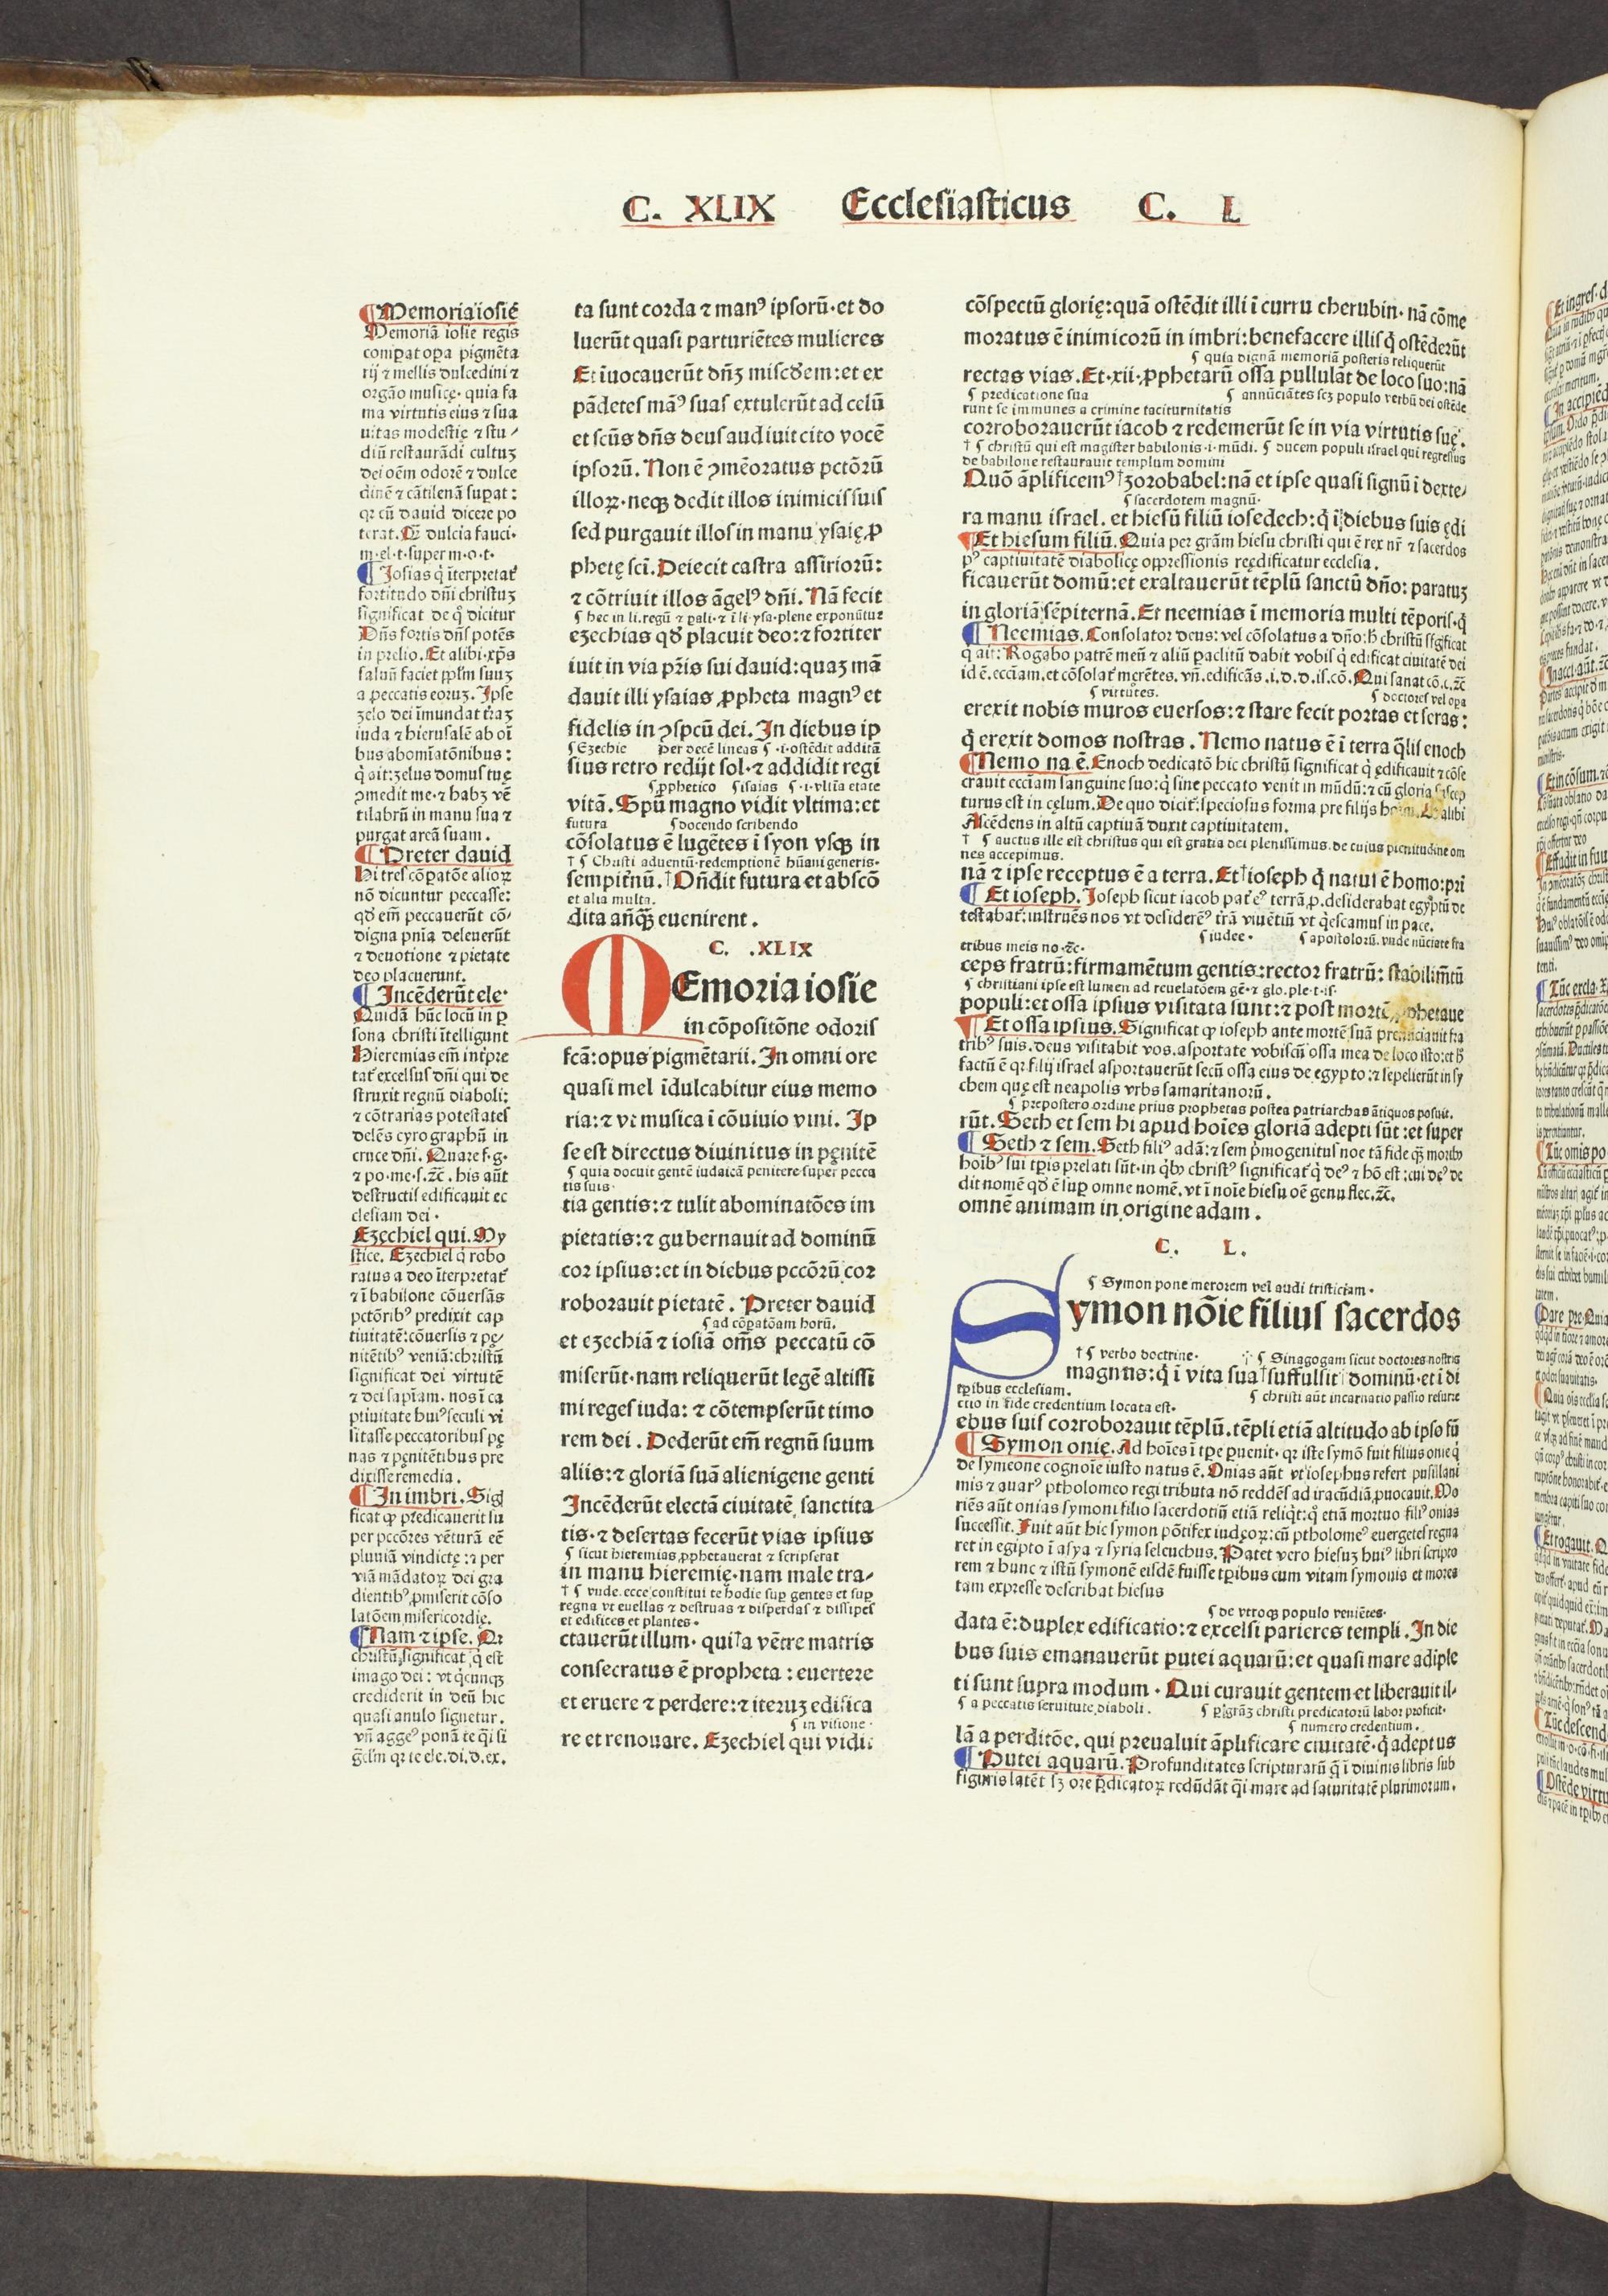 C. XLIX Ecclesiasticus C. L
¶Memoria iosie
Memoriā iosie regis
comꝑat oꝑa pigmēta
rij ⁊ mellis dulcedini ⁊
orgāo musicę· quia fa
ma virtutis eius ⁊ sua
uitas modestię ⁊ stu/
diū restaurādi cultuʒ
dei oēm odorē ⁊ dulce
dinē ⁊ cātilenā suꝑat:
qꝛ cū dauid dicere po
terat. dulcia fauci·
m·el·t·super m·o·t·
¶Iosias q̇ īterpretat̄
fortitudo dn̄i christuʒ
significat de q̇ dicitur
Dn̄s fortis dn̄s potēs
in prelio. Et alibi·xp̄s
saluū faciet pp̄lm suuʒ
a peccatis eoruʒ. Ipse
ʒelo dei īmundat tr̄aʒ
iuda ⁊ hierusalē ab oī
bus abomīatōnibus:
q̇ ait:ʒelus domus tuę
ꝯmedit me·⁊ habʒ vē
tilabrū in manu sua ⁊
purgat areā suam.
¶Preter dauid
Hi tres cōꝑatōe alioꝝ
nō dicuntur peccasse:
qd̄ em̄ peccauerūt cō/
digna pn̄ia deleuerūt
⁊ deuotione ⁊ pietate
deo placuerunt.
¶Incēderūt ele·
Quidā hūc locū in ꝑ
sona christi ītelligunt
Hieremias em̄ intꝑre
tat̄ excelsus dn̄i qui de
struxit regnū diaboli:
⁊ cōtrarias potestates
delēs cyrographū in
cruce dn̄i. Quare f·g·
⁊ po·me·s.⁊c̄. his aūt
destructis edificauit ec
clesiam dei·
Eʒechiel qui. My
stice. Eʒechiel q̇ robo
ratus a deo īterpretat̄
⁊ ī babilone cōuersās
pctōrib⁹ predixit cap
tiuitatē:cōuersis ⁊ pę/
nitētib⁹ veniā:christū
significat dei virtutē
⁊ dei sapīam. nos ī ca
ptiuitate hui⁹ seculi vi
sitasse peccatoribus pę
nas ⁊ pęnitētibus pre
dixisse remedia.
¶In imbri. Sig
ficat ꝙ predicauerit su
per pccōres vēturā eē
pluuiā vindictę:⁊ per
viā mādatoꝝ dei gra
dientib⁹ ꝓmiserit cōso
latōem misericordię.
¶Nam ⁊ ipse. Qꝛ
christū significat q̇ est
imago dei: vt q̇cunqʒ
crediderit in deū hic
quasi anulo signetur.
vn̄ agge⁹ ponā te q̄i si
gͣclm qꝛ te ele.di.d.ex.
ta sunt corda ⁊ man⁹ ipsorū·et do
luerūt quasi parturiētes mulieres
Et īuocauerūt dn̄ʒ misc̄dem:et ex
pādetes mā⁹ suas extulerūt ad celū
et scūs dn̄s deus audiuit cito vocē
ipsorū. Non ē ꝯmēoratus pctōrū
illoꝝ·neqʒ dedit illos inimicis suis
sed purgauit illos in manu ysaię ꝓ
phetę sci̅. Deiecit castra assiriorū:
⁊ cōtriuit illos āgel⁹ dn̄i. Nā fecit
¶ hec in li.regū ⁊ pali·⁊ ī li·ysa·plene exponūtur
eʒechias qd̄ placuit deo:⁊ fortiter
iuit in via pr̄is sui dauid:quaʒ mā
dauit illi ysaias ꝓpheta magn⁹ et
fidelis in ꝯspcū dei. In diebus ip
¶Eʒechie per decē lineas ¶·i·ostēdit additā
sius retro redijt sol·⁊ addidit regi
¶ꝓphetico ¶isaias ¶·i·vltīa etate
vitā. Spū magno vidit vltima:et
futura ¶docendo scribendo
cōsolatus ē lugētes ī syon vsqʒ in
†¶ Christi aduentū·redemptionē hūani generis·
sempit̄nū.†Ondit futura et absco
et alia multa.
dita añqʒ euenirent.
C. .XLIX
MEmoria iosie
in cōpositōne odoris
fcā:opus pigmētarii. In omni ore
quasi mel īdulcabitur eius memo
ria:⁊ vt musica ī cōuiuio vini. Ip
se est directus diuinitus in pęnitē
¶ quia docuit gentē iudaicā penitere super pecca
tis suis·
tia gentis:⁊ tulit abominatōes im
pietatis:⁊ gubernauit ad dominū
cor ipsius:et in diebus pccōrū cor
roborauit pietatē. Preter dauid
¶ad cōꝑatōam horū.
et eʒechiā ⁊ iosiā om̄s peccatū cō
miserūt·nam reliquerūt legē altissi
mi reges iuda:⁊ cōtempserūt timo
rem dei. Dederūt em̄ regnū suum
aliis:⁊ gloriā suā alienigene genti
Incēderūt electā ciuitatē sanctita
tis·⁊ desertas fecerūt vias ipsius
¶ sicut hieremias ꝓphetauerat ⁊ scripserat
in manu hieremię·nam male tra-
†¶ vnde.ecce constitui te hodie suꝑ gentes et suꝑ
regna vt euellas ⁊ destruas ⁊ disperdas ⁊ dissipes
et edifices et plantes·
ctauerūt illum· qui†a vētre matris
consecratus ē propheta:euertere
et eruere ⁊ perdere:⁊ iteruʒ edifica
¶ in visione·
re et renouare. Eʒechiel qui vidit
cōspectū glorię:quā ostēdit illi ī curru cherubin· nā cōme
moratus ē inimicorū in imbri:benefacere illis q̇ ostēderūt
¶ quia dignā memoriā posteris reliquerūt
rectas vias. Et·xii·ꝓphetarū ossa pullulāt de loco suo:nā
¶ predicatione sua ¶ annūciātes scʒ populo verbū dei ostēde
runt se immunes a crimine taciturnitatis
corroborauerūt iacob ⁊ redemerūt se in via virtutis suę.
†¶ christū qui est magister babilonis·i·mūdi. ¶ ducem populi israel qui regressus
de babilone restaurauit templum domini
Quō āplificem⁹†ʒorobabel:nā et ipse quasi signū ī dexte/
¶ sacerdotem magnū·
ra manu israel. et hiesū filiū iosedech:q̇ ī diebus suis ędi
¶Et hiesum filiū. Quia per grām hiesu christi qui ē rex nr̄ ⁊ sacerdos
p⁹ captiuitatē diabolicę oppressionis reędificatur ecclesia.
ficauerūt domū:et exaltauerūt tēplū sanctū dn̄o: paratuʒ
in gloriā sēpiternā. Et neemias ī memoria multi tēporis·q̇
¶Neemias. Consolator deus: vel cōsolatus a dn̄o:h̄ christū sigficat
q̇ ait:Rogabo patrē meū ⁊ aliū paclitū dabit vobis q̇ edificat ciuitatē dei
id ē.ecciam.et cōsolat̄ męrētes. vn̄.edificās.i.d.d.is.cō.Qui sanat cō.c.⁊c̄
¶ virtutes. ¶ doctores vel opa
erexit nobis muros euersos:⁊ stare fecit portas et seras:
q̇ erexit domos nostras. Nemo natus ē ī terra q̄lis enoch
¶Nemo na ē. Enoch dedicatō hic christū significat q̇ ędificauit ⁊ cōse
crauit ecciam sanguine suo:q̇ sine peccato venit in mūdū:⁊ cū gloria suscep
turus est in cęlum. De quo dicit̄:speciosus forma pre filijs alibi
Ascēdens in altū captiuā duxit captiuitatem.
†¶ auctus ille est christus qui est gratia dei plenissimus.de cuius plenitudine om
nes accepimus.
nā ⁊ ipse receptus ē a terra. Et†ioseph q̇ natus ē homo:pri
¶Et ioseph. Ioseph sicut iacob pat̄ e⁹ terrā ꝓ.desiderabat egyptū de
testabat̄:instruēs nos vt desiderem⁹ tr̄ā viuētiū vt q̇escamus in pace.
¶iudee· ¶apostolorū.vnde nūciate fra
tribus meis no·⁊c̄·
ceps fratrū:firmamētum gentis:rector fratrū: stabilimtū
¶ christiani ipse est lumen ad reuelatōem gē·⁊ glo·ple·t·is·
populi:et ossa ipsius visitata sunt:⁊ post mortē ꝓphetaue
¶Et ossa ipsius. Significat ꝙ ioseph ante mortē suā prenūciauit fra
trib⁹ suis.deus visitabit vos.asportate vobiscū ossa mea de loco isto:et h̄
factū ē qꝛ filij israel asportauerūt secū ossa eius de egypto:⁊ sepelierūt in sy
chem quę est neapolis vrbs samaritanorū.
¶ prepostero ordine prius prophetas postea patriarchas ātiquos posuit.
rūt. Seth et sem hi apud hoīes gloriā adepti sūt:et super
¶Seth ⁊ sem. Seth fili⁹ adā:⁊ sem pͥmogenitus noe tā fide qʒ morib⁹
hoib⁹ sui tꝑis prelati sūt·in q̇b⁹ christ⁹ significat̄ q̇ de⁹ ⁊ hō est:cui de⁹ de
dit nomē qd̄ ē suꝑ omne nomē.vt ī noīe hiesu oē genu flec.⁊c̄.
omnē animam in origine adam.
C. L.
¶ Symon pone merorem vel audi tristiciam·
Symon nōie filius sacerdos
†¶ verbo doctrine· ∵¶ Sinagogam sicut doctores nostris
magnus:q̇ ī vita sua†suffulsit dominū·et ī di
tꝑibus ecclesiam. ¶ christi aūt incarnatio passio resurre
ctio in fide credentium locata est·
ebus suis corroborauit tēplū.tēpli etiā altitudo ab ipso fū
¶Symon onię. Ad hoīes ī tꝑe ꝑuenit· qꝛ iste symō fuit filius onie q̇
de symeone cognoīe iusto natus ē. Onias aūt vt iosephus refert pusillani
mis ⁊ auar⁹ ptholomeo regi tributa nō reddēs ad iracūdiā ꝓuocauit. Mo
riēs aūt onias symoni filio sacerdotiū etiā reliq̇t:q̇ etiā mortuo fili⁹ onias
successit. Fuit aūt hic symon pōtifex iudęoꝝ:cū ptholome⁹ euergetes regna
ret in egipto ī asya ⁊ syria seleuchus. Patet vero hiesuʒ hui⁹ libri scripto
rem ⁊ hunc ⁊ istū symonē eisdē fuisse tꝑibus cum vitam symonis et mores
tam expresse describat hiesus
¶ de vtroqʒ populo veniētes·
data ē:duplex edificatio:⁊ excelsi parieres templi. In die
bus suis emanauerūt putei aquarū:et quasi mare adiple
ti sunt supra modum· Qui curauit gentem·et liberauit il-
¶ a peccatis seruitute diaboli. ¶ ꝑ grāʒ christi predicatorū labor proficit·
¶ numero credentium.
lā a perditōe. qui preualuit āplificare ciuitatē·q̇ adeptus
¶Putei aquarū. Profunditates scripturarū q̄ ī diuinis libris sub
figuris latēt sʒ ore p̄dicatoꝝ redūdāt q̄i mare ad saturitatē plurimorum.